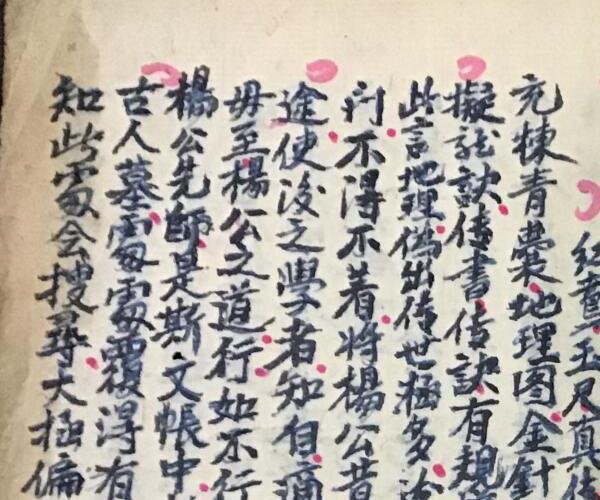 經賣玉尺真
充棟青囊地理图金針
擬龍訣侍書侍訣有規
此言地理偽出侍世極多
行不得不着將楊公昔
途使後之學者知自痛
毋至楊公之道行如不行
楊公先師是斯文帳中
古人墓䨓䨓覆得有
知此䨓会搜尋大極偏